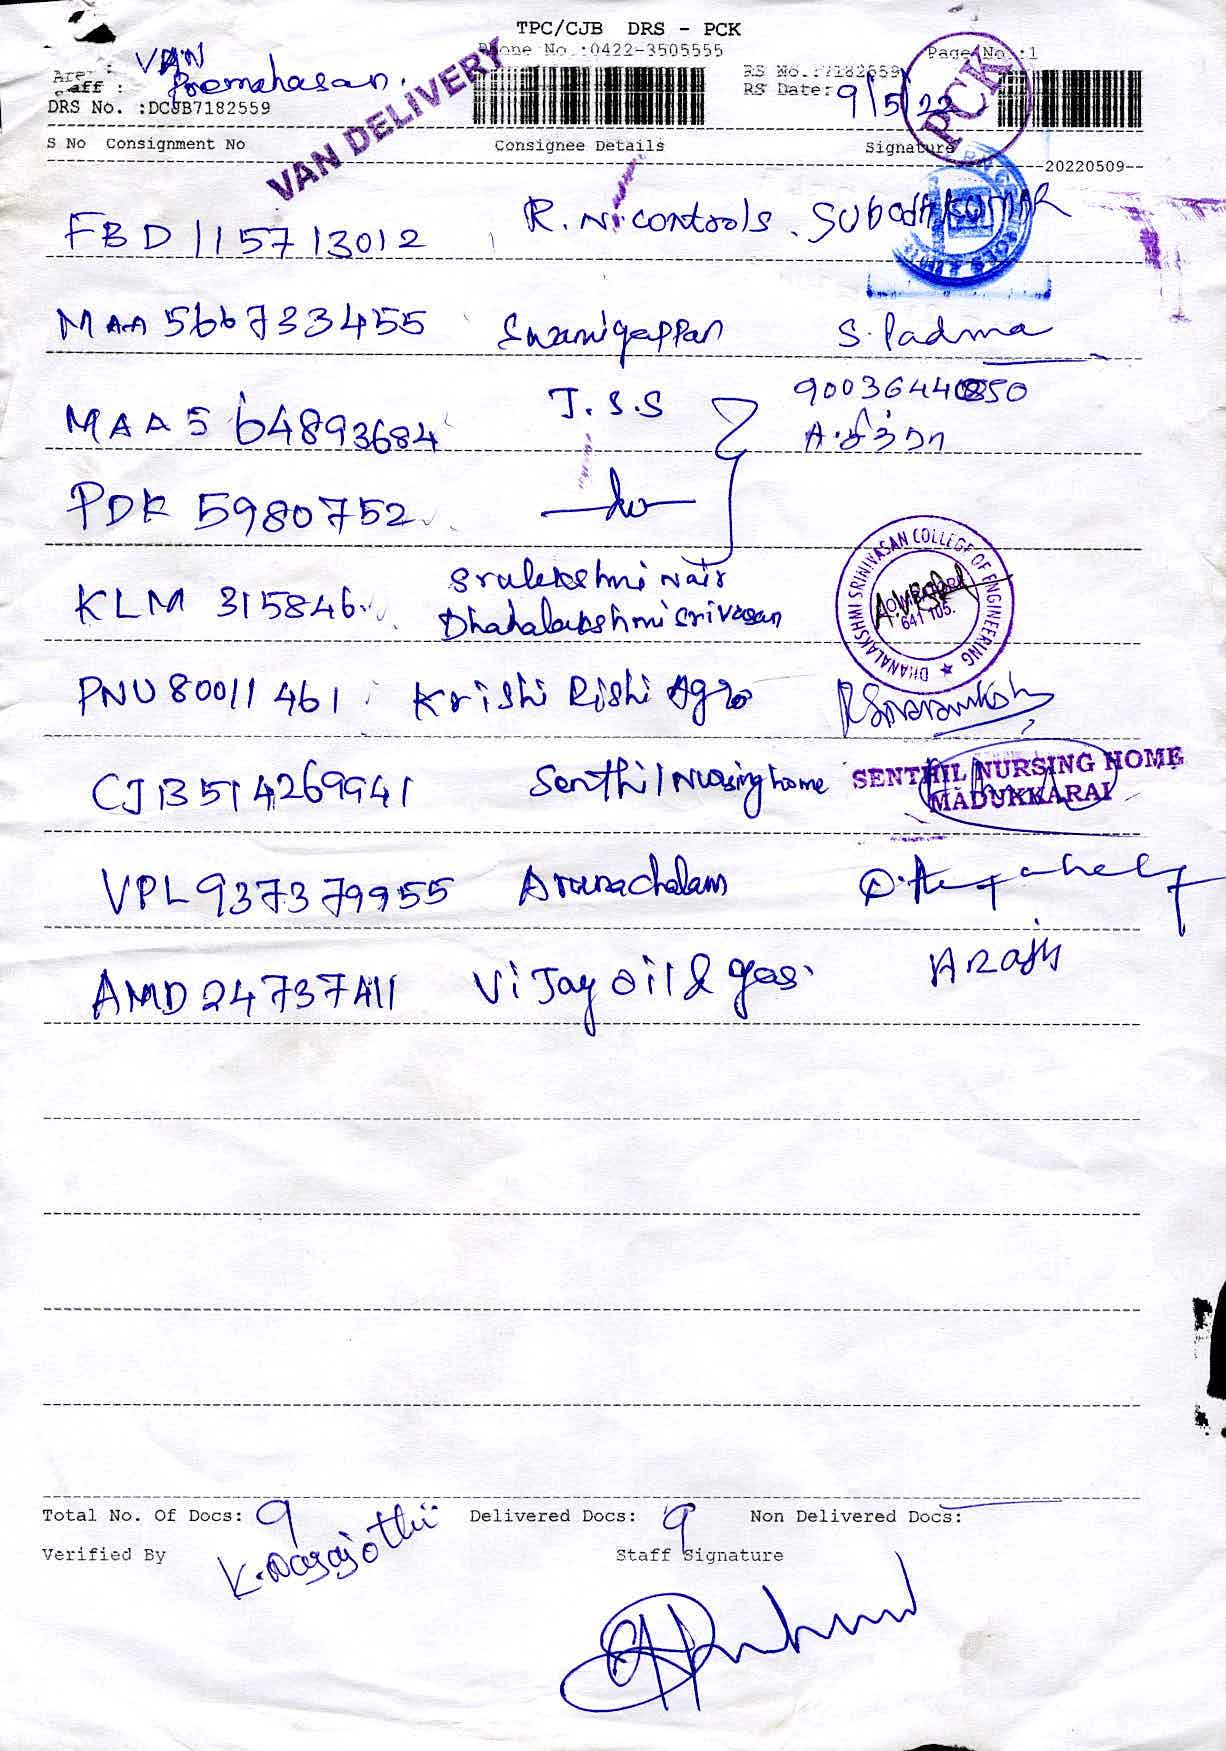 TPC/CJB DRS - PCK
Phone No.:0422-3505555
Page No.:1
VAN
Premahasan.
VAN DELIVERY
PCK
RS No.:7182559
RS Date: 9/5/22
DRS No. :DCJB7182559
S No Consignment No Consignee Details Signature
20220509--
FBD 115713012 R.N. controls. SUBODH KUMAR
MAA 566733455 Swamigappan S. Padma
MAA 5 64893684 J.S.S 90036440850
PDK 5980752 -do-
KLM 315846 Sralekshmi Nair
Dhahalakshmi Srivasan
DHANALAKSHMI SRINIVASAN COLLEGE OF ENGINEERING
COIMBATORE
641 105.
PNU 80011461 Krishi Rishi Agro
CJB 514269941 Senthil Nursing home SENTHIL NURSING HOME
MADUKKARAI
VPL 937379955 Arunachalam
AMD 24737411 Vijay oil & gas. A Rajis
Total No. Of Docs: 9 Delivered Docs: 9 Non Delivered Docs:
Verified By Staff Signature
K. Nagajothi